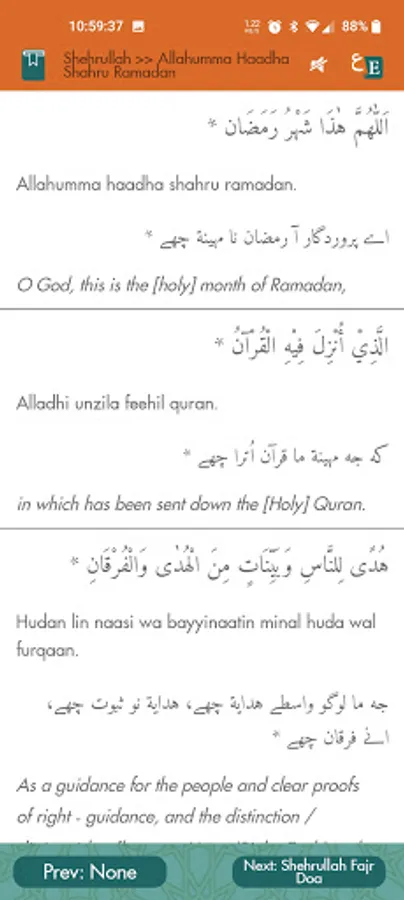 10:59:37
1.22
88%
Shehrullah >> Allahumma Haadha
Shahru Ramadan
ع E
اَللّٰهُمَّ هٰذَا شَهْرُ رَمَضَان *
Allahumma haadha shahru ramadan.
اے پروردگار آ رمضان نا مهينة چھے *
O God, this is the [holy] month of Ramadan,
الَّذِيْ أُنْزِلَ فِيْهِ الْقُرْآنُ *
Alladhi unzila feehil quran.
كه جه مهينة ما قرآن اُترا چھے *
in which has been sent down the [Holy] Quran.
هُدًى لِلنَّاسِ وَبَيِّنَاتٍ مِنَ الْهُدٰى وَالْفُرْقَانِ *
Hudan lin naasi wa bayyinaatin minal huda wal
furqaan.
جه ما لوگو واسطے هداية چھے، هداية نو ثبوت چھے،
انے فرقان چھے *
As a guidance for the people and clear proofs
of right - guidance, and the distinction /
Prev: None
Next: Shehrullah Fajr
Doa